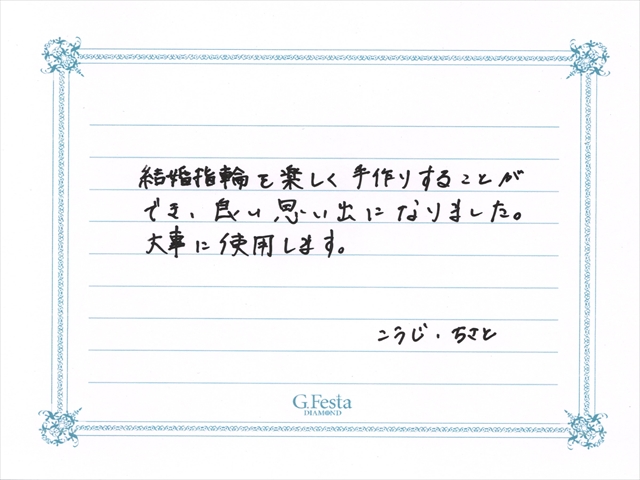 結婚指輪を楽しく手作りすることが
でき、良い思い出になりました。
大事に使用します。
こうじ・ちさと
G.Festa
DIAMOND